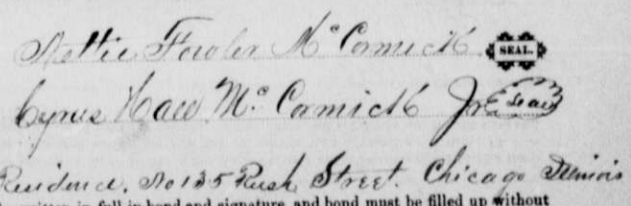 Nettie Fowler McCormick. SEAL.
Cyrus Hall McCormick Jr Seal
Residence. No 135 Rush Street. Chicago Illinois
written in full in bond and signature, and bond must be filled up without